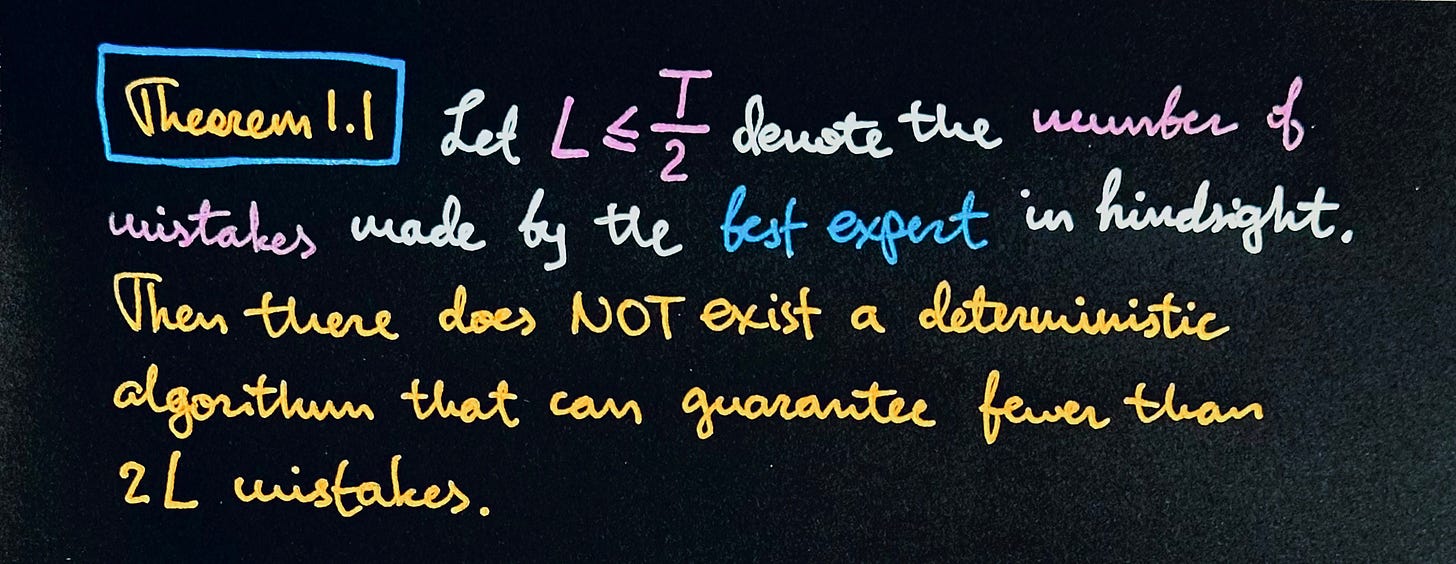 Theorem 1.1 Let L ≤ T/2 denote the number of
mistakes made by the best expert in hindsight.
Then there does NOT exist a deterministic
algorithm that can guarantee fewer than
2L mistakes.